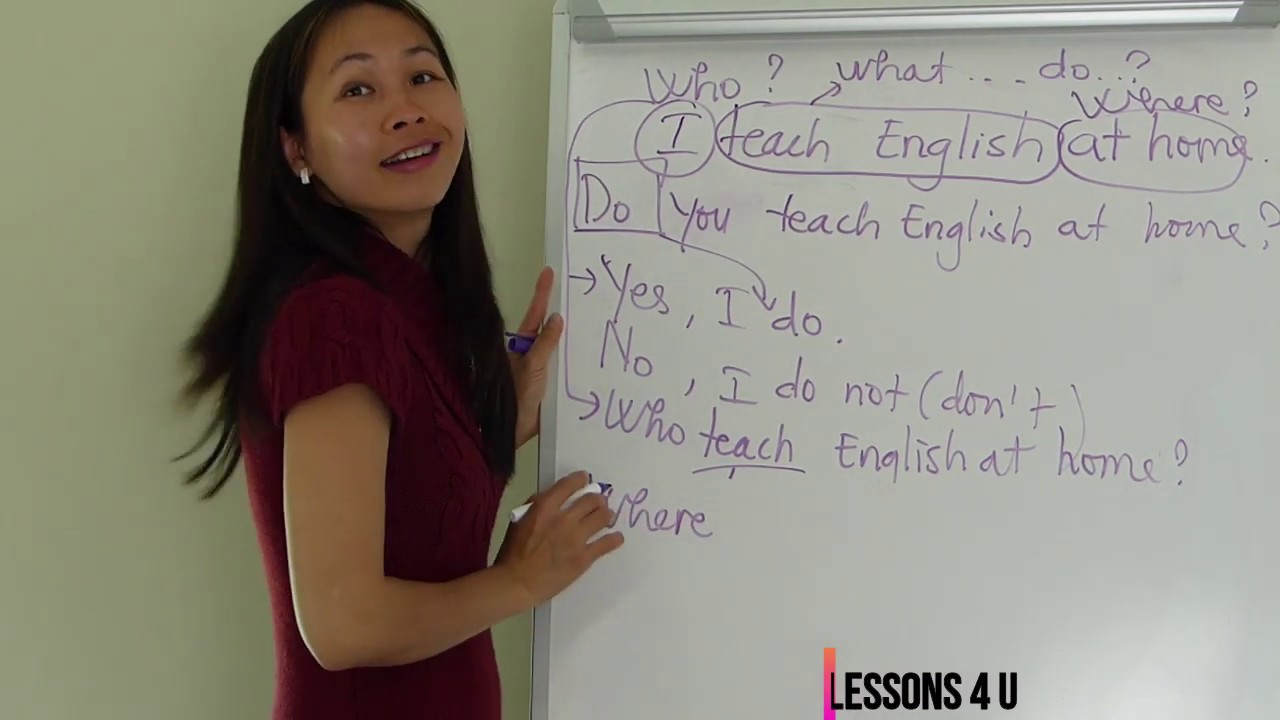 Who? what .... do..?
Where?
I teach English at home.
Do You teach English at home?
Yes, I do.
No, I do not (don't)
Who teach English at home?
Where
LESSONS 4 U